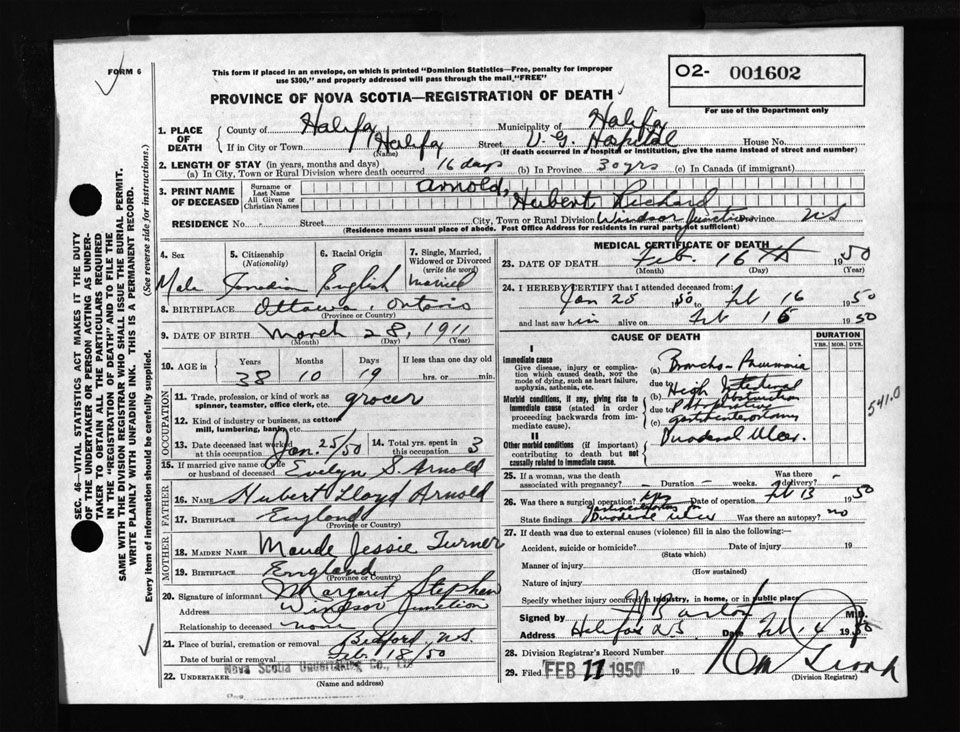 FORM 6
This form if placed in an envelope, on which is printed "Dominion Statistics—Free, penalty for improper
use $300," and properly addressed will pass through the mail, "FREE"
O2- 001602
For use of the Department only
PROVINCE OF NOVA SCOTIA—REGISTRATION OF DEATH
SEC. 46—VITAL STATISTICS ACT MAKES IT THE DUTY
OF THE UNDERTAKER OR PERSON ACTING AS UNDER-
TAKER TO OBTAIN ALL THE PARTICULARS REQUIRED
IN THE "REGISTRATION OF DEATH" AND TO FILE THE
SAME WITH THE DIVISION REGISTRAR WHO SHALL ISSUE THE BURIAL PERMIT.
WRITE PLAINLY WITH UNFADING INK. THIS IS A PERMANENT RECORD.
Every item of information should be carefully supplied. (See reverse side for instructions.)
1. PLACE OF DEATH County of Halifax Municipality of Halifax
If in City or Town Halifax (Name) Street V.G. Hospital House No.
(If death occurred in a hospital or institution, give the name instead of street and number)
2. LENGTH OF STAY (in years, months and days)
(a) In City, Town or Rural Division where death occurred 16 days (b) In Province 30 yrs (c) In Canada (if immigrant)
3. PRINT NAME OF DECEASED Surname or Last Name Arnold,
All Given or Christian Names Hubert Richard
RESIDENCE No. Street City, Town or Rural Division Windsor Junction Province NS
(Residence means usual place of abode. Post Office Address for residents in rural parts not sufficient)
4. Sex Male
5. Citizenship (Nationality) Canadian
6. Racial Origin English
7. Single, Married, Widowed or Divorced (write the word) Married
8. BIRTHPLACE Ottawa, Ontario
(Province or Country)
9. DATE OF BIRTH March 28, 1911
(Month) (Day) (Year)
10. AGE in Years Months Days If less than one day old
38 10 19 hrs. or min.
OCCUPATION
11. Trade, profession, or kind of work as
spinner, teamster, office clerk, etc. grocer
12. Kind of industry or business, as cotton
mill, lumbering, bank, etc.
13. Date deceased last worked
at this occupation Jan. 25/50
14. Total yrs. spent in 3
15. If married give name of wife
or husband of deceased Evelyn S. Arnold
FATHER
16. NAME Hubert Lloyd Arnold
17. BIRTHPLACE England
(Province or Country)
MOTHER
18. MAIDEN NAME Maude Jessie Turner
19. BIRTHPLACE England
(Province or Country)
20. Signature of informant Margaret Stephen
Address Windsor Junction
Relationship to deceased none
21. Place of burial, cremation or removal Bedford, N.S.
Date of burial or removal Feb. 18/50
22. UNDERTAKER Nova Scotia Undertaking Co., Ltd
(Name and address)
MEDICAL CERTIFICATE OF DEATH
23. DATE OF DEATH Feb. 16th 1950
(Month) (Day) (Year)
24. I HEREBY CERTIFY that I attended deceased from:
Jan 25 1950 to Feb 16 1950
and last saw him alive on Feb 15 1950
CAUSE OF DEATH DURATION
YRS. MOS. DYS.
I
Immediate cause
Give disease, injury or complica-
tion which caused death, NOT the
mode of dying, such as heart failure,
asphyxia, asthenia, etc.
(a) Broncho-Pneumonia
due to
Morbid conditions, if any, giving rise to
immediate cause (stated in order
proceeding backwards from im-
mediate cause).
(b) High Intestinal Obstruction
due to
(c) Post operative gastroenterostomy
541.0
II
Other morbid conditions (if important)
contributing to death but not
causally related to immediate cause.
Duodenal Ulcer.
25. If a woman, was the death Was there
associated with pregnancy? – Duration – weeks. delivery? –
26. Was there a surgical operation? yes Date of operation Feb 13 1950
State findings Gastroenterostomy for Duodenal ulcer Was there an autopsy? no
27. If death was due to external causes (violence) fill in also the following:—
Accident, suicide or homicide? Date of injury 19
(State which)
Manner of injury
(How sustained)
Nature of injury
Specify whether injury occurred in industry, in home, or in public place
Signed by M.D.
Address Halifax NS Date Feb 1950
28. Division Registrar's Record Number
29. Filed FEB 17 1950 19
(Division Registrar)